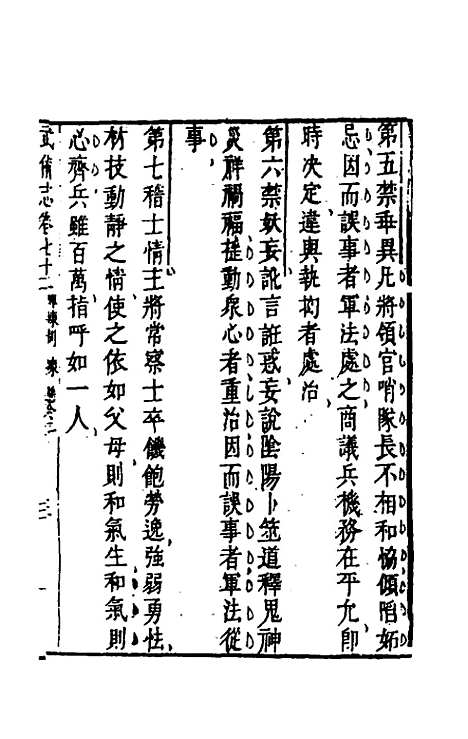 第五禁乖異凡將領官哨隊長不相和恊傾陷妬
忌因而誤事者軍法處之商議兵機務在平允即
時决定違與執拘者處治
第六禁妖妄訛言誑惑妄說陰陽卜筮道釋鬼神
災祥禍福揺動衆心者重治因而誤事者軍法從
事
第七稽士情主將常察士卒饑飽勞逸強弱勇怯
材技動静之情使之依如父母則和氣生和氣則
心齊兵雖百萬指呼如一人
武備志卷七十二 練 三